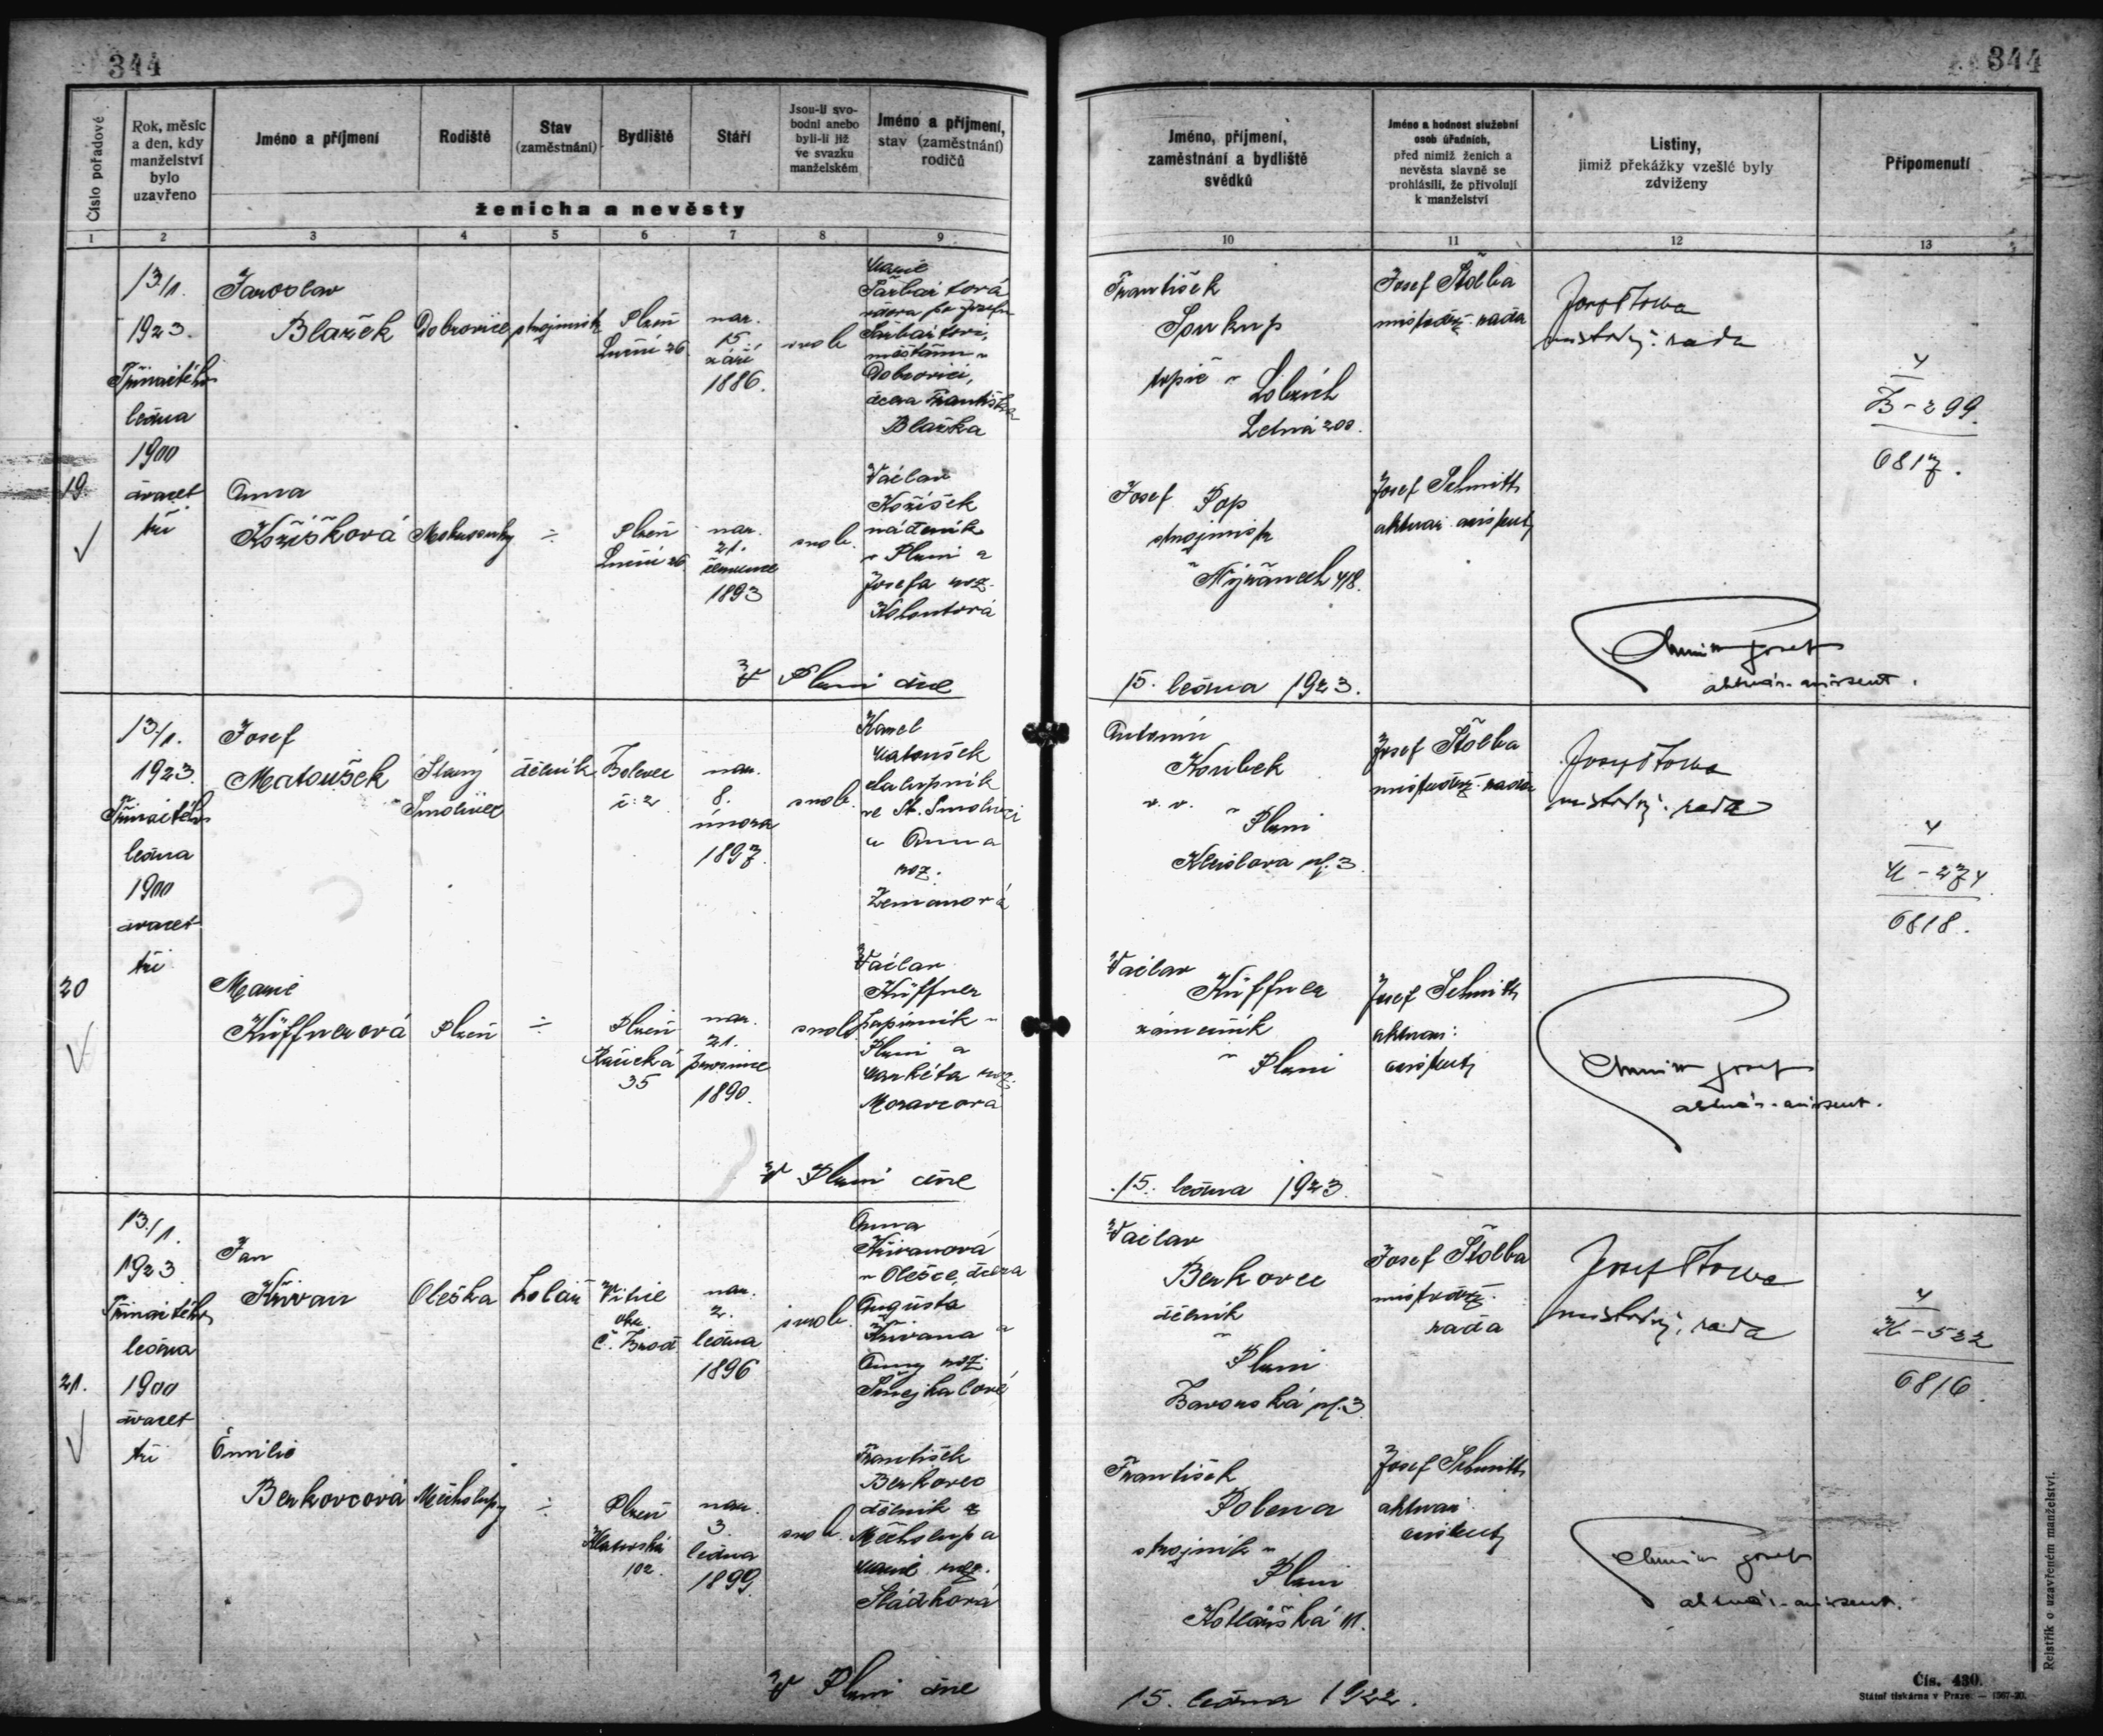 344
344
Číslo pořadové
Rok, měsíc
a den, kdy
manželství
bylo
uzavřeno
Jméno a příjmení
Rodiště
Stav
(zaměstnání)
Bydliště
Stáří
Jsou-li svo-
bodni anebo
byli-li již
ve svazku
manželském
Jméno a příjmení,
stav (zaměstnání)
rodičů
ženicha a nevěsty
Jméno, příjmení,
zaměstnání a bydliště
svědků
Jméno a hodnost služební
osob úřadních,
před nimiž ženich a
nevěsta slavně se
prohlásili, že přivolují
k manželství
Listiny,
jimiž překážky vzešlé byly
zdviženy
Připomenutí
1
2
3
4
5
6
7
8
9
10
11
12
13
19.
13/1.
1923.
Třináctého
ledna
1900
dvacet
tři
Jaroslav
Blažek
Dobrovice
strojník
Plzeň
Luční 26
nar.
15.
září
1886.
svob
Marie
vdova po Josefu
měšťanu v
Dobrovici,
dcera Františka
Blažka
Anna
Kožíšková
Plzeň
Luční 26
nar.
21.
července
1893
svob.
Václav
Kožíšek
nádeník
v Plzni a
Josefa roz.
František
Soukup
topič v
Lobzích
Letná 200.
Josef Pop
strojmistr
v Nýřanech 418.
Josef Štolba
místodrž. rada
Josef Schmitt
aktuár. assistent
Josef Štolba
místodrž. rada
Schmitt Josef
aktuár. assistent.
4
B-299.
6817.
V Plzni dne
15. ledna 1923.
20
13/1.
1923.
Třináctého
ledna
1900
dvacet
tři
Josef
Matoušek
Starý
Smolivec
dělník
Bolevec
č. 2
nar.
8.
února
1897.
svob.
Karel
Matoušek
chalupník
ve St. Smolivci
a Anna
roz.
Zemanová
Marie
Küffnerová
Plzeň
÷
Plzeň
35
nar.
21.
prosince
1890.
svob.
Václav
Küffner
v
Plzni a
Markéta roz.
Moravcová
Antonín
Koubek
v. v. v
Plzni
Klicislova pl. 3
Václav
Küffner
zámečník
v Plzni
Josef Štolba
místodrž. rada
Josef Schmitt
aktuár.
assistent
Josef Štolba
místodrž. rada
Schmitt Josef
aktuár. assistent.
4
M-274.
6818.
V Plzni dne
15. ledna 1923.
21.
13./1.
1923
Třináctého
ledna
1900
dvacet
tři
Jan
Křivan
Oleška
kolář
Vitice
okr.
Č. Brod
nar.
2.
ledna
1896
svob.
Anna
Křivanová
v Olešce, dcera
Augusta
Křivana a
Anny roz.
Smejkalové
Emilie
Berkovcová
Měcholupy
÷
Plzeň
Klatovská
102.
nar.
3.
ledna
1899.
svob.
František
Berkovec
dělník z
Měcholup a
Marie roz.
Sládková
Václav
Berkovec
dělník
v
Plzni
Bavorská pl. 3
František
Polena
strojník v
Plzni
Kotlářská 11.
Josef Štolba
místodrž.
rada
Josef Schmitt
aktuár.
assistent
Josef Štolba
místodrž. rada
Schmitt Josef
aktuár. assistent.
4
K-522
6816.
V Plzni dne
15. ledna 1922.
Rejstřík o uzavřeném manželství.
Čís. 430.
Státní tiskárna v Praze. — 1567-20.